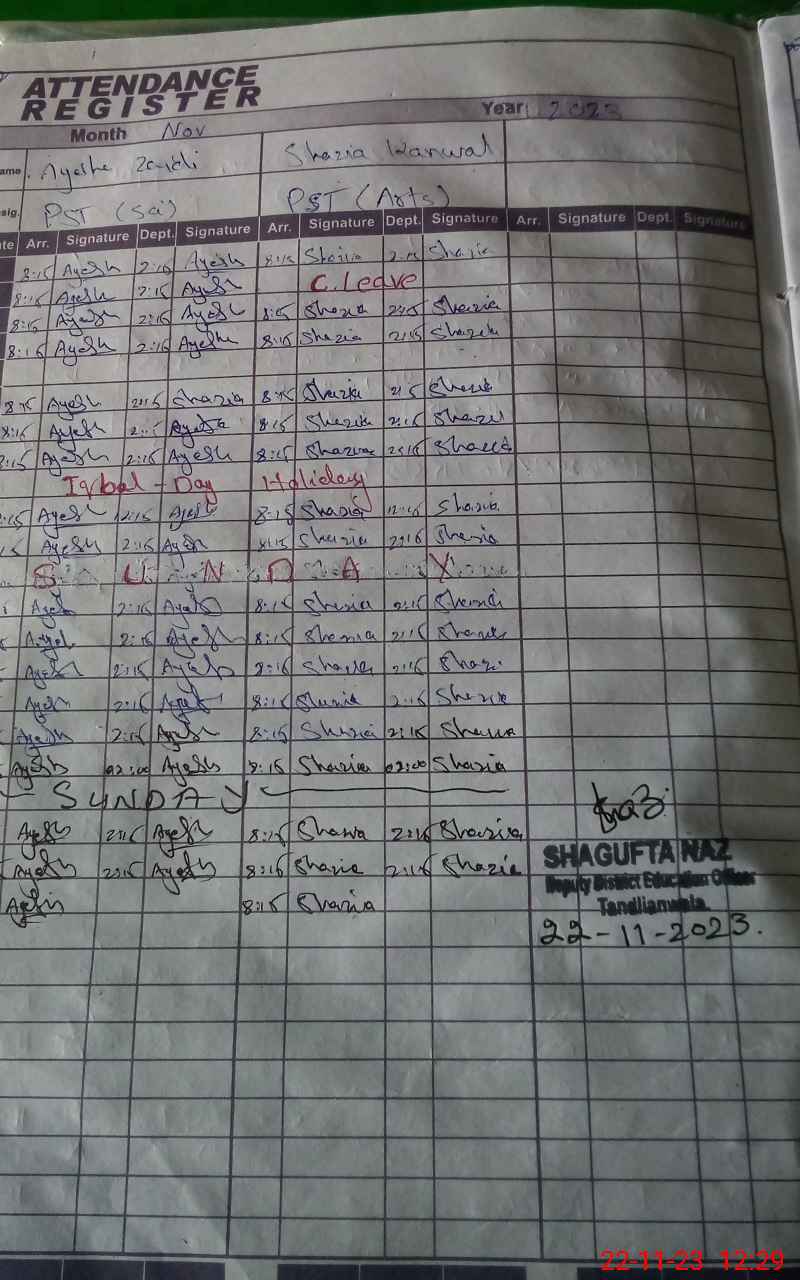 ATTENDANCE
REGISTER
Year: 2023
Month Nov
ame Ayesha Shazia Kanwal
sig. PST (Sci) PST (Arts)
te Arr. Signature Dept. Signature Arr. Signature Dept. Signature Arr. Signature Dept. Signature
8:15 Ayesh 2:15 Ayesh 8:15 Shazia 2:15 Shazia
8:15 Ayesh 2:15 Ayesh C. Leave
8:15 Ayesh 2:15 Ayesh 8:15 Shazia 2:15 Shazia
8:15 Ayesh 2:15 Ayesh 8:15 Shazia 2:15 Shazia
8:15 Ayesh 2:15 Shazia 8:15 Shazia 2:15 Shazia
8:15 Ayesh 2:15 Ayesh 8:15 Shazia 2:15 Shazia
8:15 Ayesh 2:15 Ayesh 8:15 Shazia 2:15 Shazia
Iqbal - Day Holiday
:15 Ayesh 12:15 Ayesh 8:15 Shazia 12:15 Shazia
15 Ayesh 2:15 Ayesh 8:15 Shazia 2:15 Shazia
S U N D A Y
Ayesh 2:15 Ayesh 8:15 Shazia 2:15 Shazia
Ayesh 2:15 Ayesh 8:15 Shazia 2:15 Shazia
Ayesh 2:15 Ayesh 8:15 Shazia 2:15 Shazia
Ayesh 2:15 Ayesh 8:15 Shazia 2:15 Shazia
Ayesh 2:15 Ayesh 8:15 Shazia 2:15 Shazia
Ayesh 02:00 Ayesh 8:15 Shazia 02:00 Shazia
SUNDAY
Ayesh 2:15 Ayesh 8:15 Shazia 2:15 Shazia
Ayesh 2:15 Ayesh 8:15 Shazia 2:15 Shazia
Ayesh 8:15 Shazia
SHAGUFTA NAZ
Deputy District Education Officer
Tandlianwala.
22-11-2023.
22-11-23 12:29